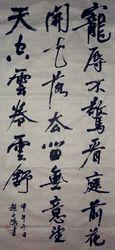 寵辱不驚看庭前花
開花落去留無意望
天空雲卷雲舒
甲午冬日